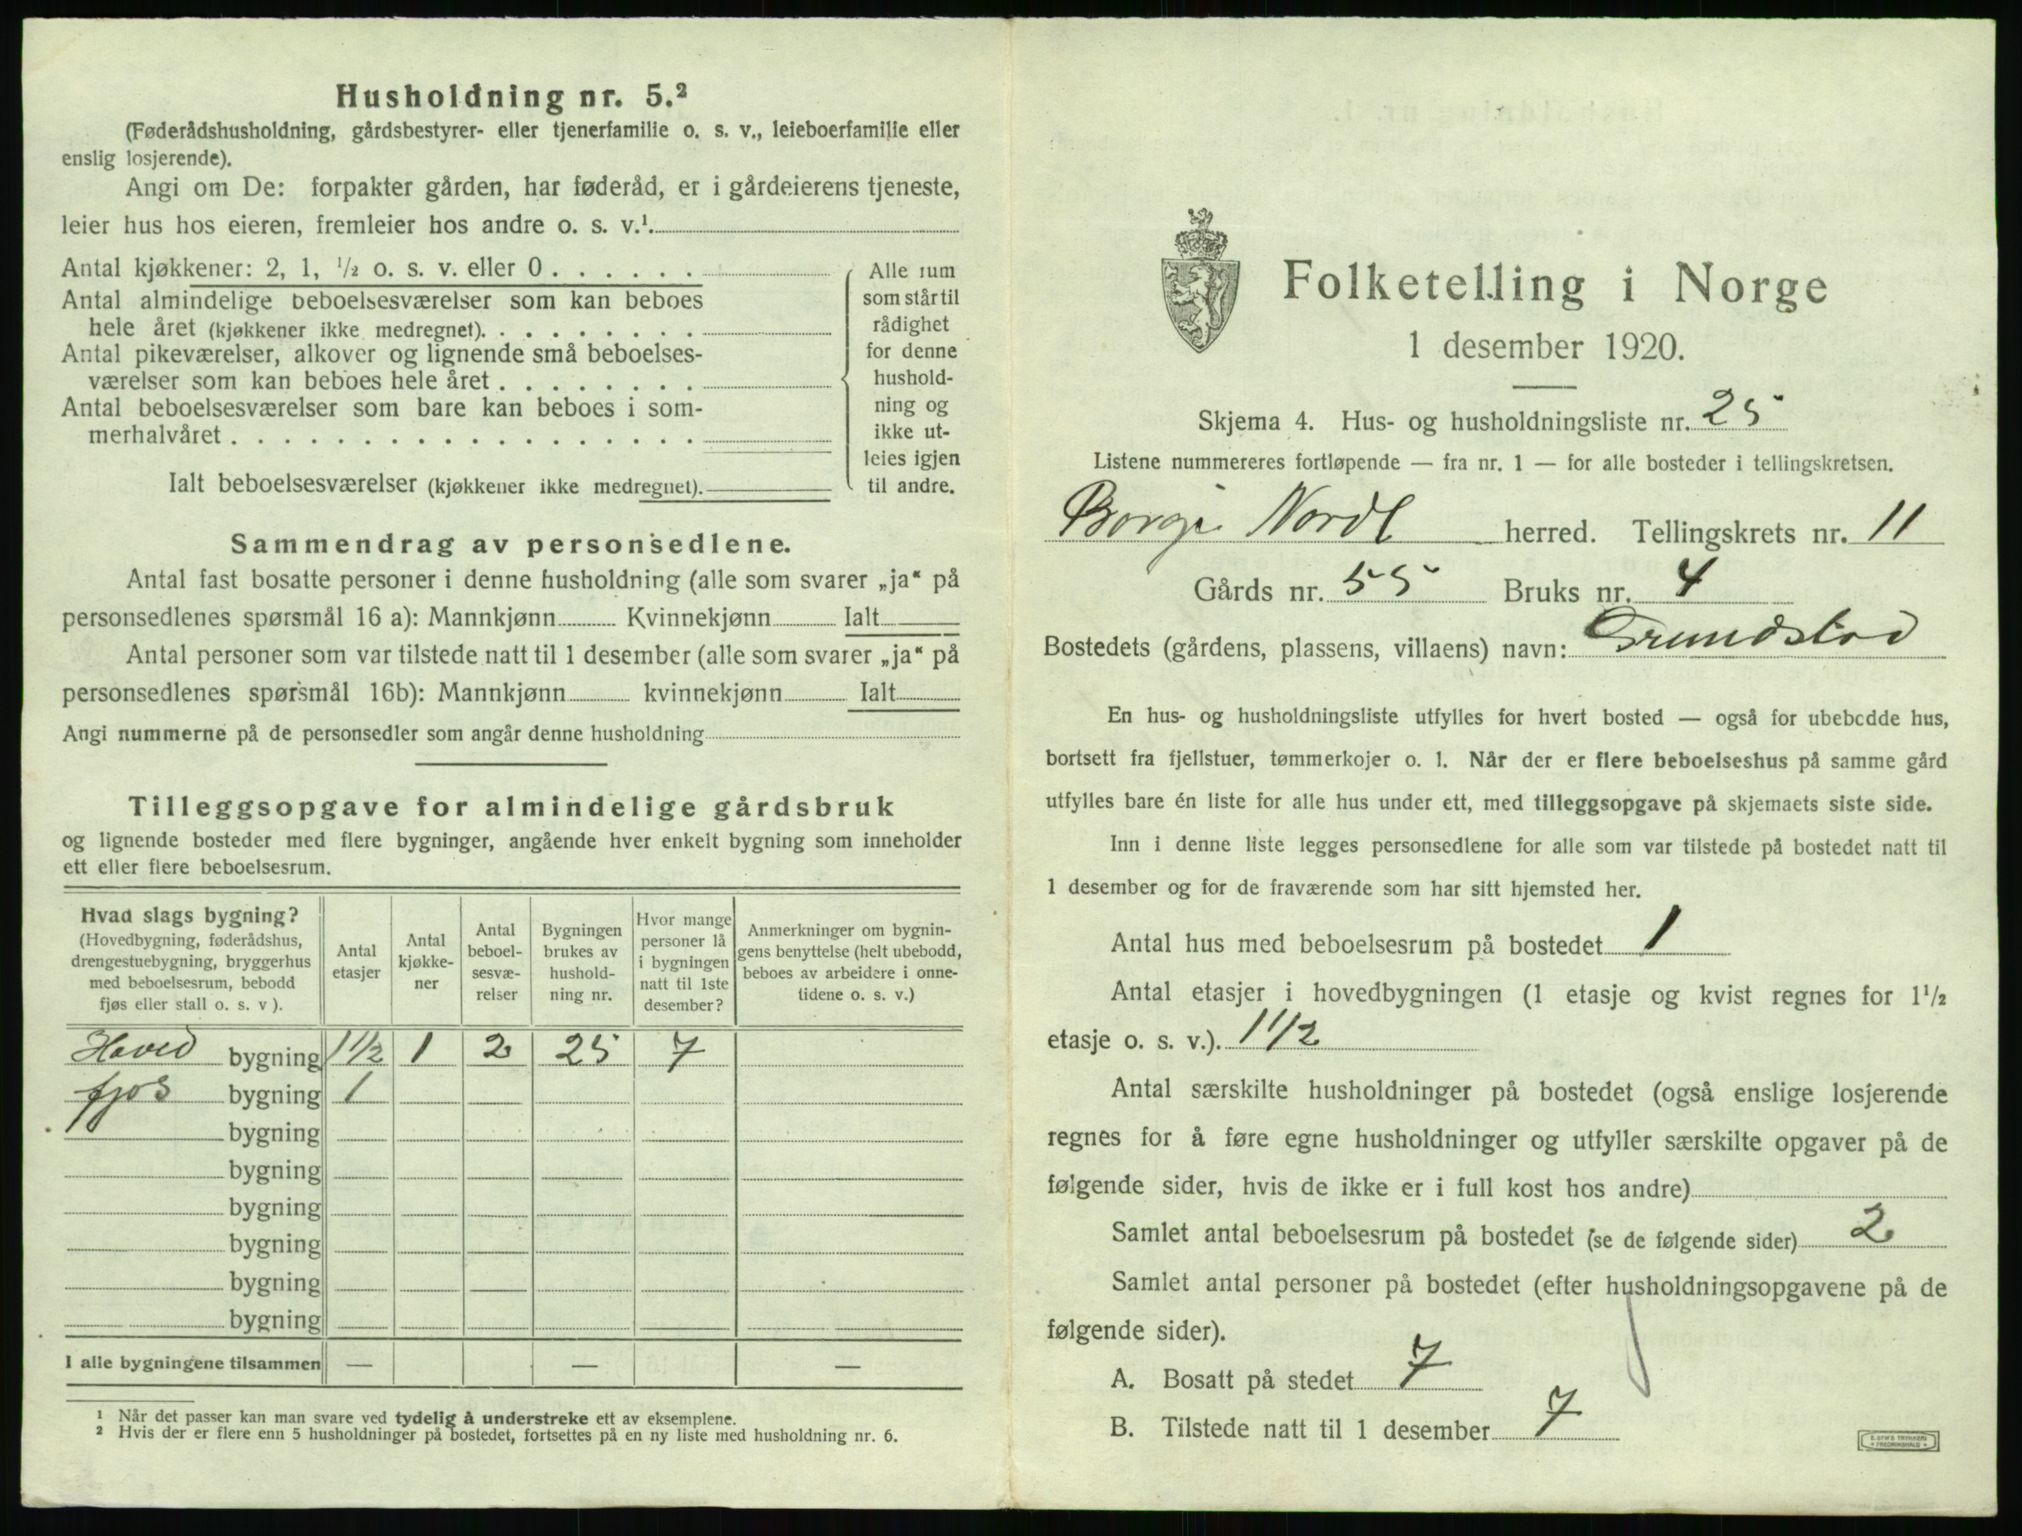 Husholdning nr. 5.²
(Føderådshusholdning, gårdsbestyrer- eller tjenerfamilie o. s. v., leieboerfamilie eller
enslig losjerende).
Angi om De: forpakter gården, har føderåd, er i gårdeierens tjeneste,
leier hus hos eieren, fremleier hos andre o. s. v.¹.
Antal kjøkkener: 2, 1, ½ o. s. v. eller 0 . . . . . .
Antal almindelige beboelsesværelser som kan beboes
hele året (kjøkkener ikke medregnet). . . . . . . . .
Antal pikeværelser, alkover og lignende små beboelses-
værelser som kan beboes hele året . . . . . . . .
Antal beboelsesværelser som bare kan beboes i som-
merhalvåret . . . . . . . . . . . . . . . . . .
Ialt beboelsesværelser (kjøkkener ikke medregnet).
Alle rum
som står til
rådighet
for denne
hushold-
ning og
ikke ut-
leies igjen
til andre.
Sammendrag av personsedlene.
Antal fast bosatte personer i denne husholdning (alle som svarer „ja“ på
personsedlenes spørsmål 16 a): Mannkjønn Kvinnekjønn Ialt
Antal personer som var tilstede natt til 1 desember (alle som svarer „ja“ på
personsedlenes spørsmål 16b): Mannkjønn kvinnekjønn Ialt
Angi nummerne på de personsedler som angår denne husholdning
Tilleggsopgave for almindelige gårdsbruk
og lignende bosteder med flere bygninger, angående hver enkelt bygning som inneholder
ett eller flere beboelsesrum.
Hvad slags bygning?
(Hovedbygning, føderådshus,
drengestuebygning, bryggerhus
med beboelsesrum, bebodd
fjøs eller stall o. s. v ).
Antal
etasjer
Antal
kjøkke-
ner
Antal
beboel-
sesvæ-
relser
Bygningen
brukes av
hushold-
ning nr.
Hvor mange
personer lå
i bygningen
natt til 1ste
desember?
Anmerkninger om bygnin-
gens benyttelse (helt ubebodd,
beboes av arbeidere i onne-
tidene o. s. v.)
Hoved bygning 1½ 1 2 25 7
fjos bygning 1
bygning
bygning
bygning
bygning
bygning
bygning
I alle bygningene tilsammen — — —
¹ Når det passer kan man svare ved tydelig å understreke ett av eksemplene.
² Hvis der er flere enn 5 husholdninger på bostedet, fortsettes på en ny liste med husholdning nr. 6.
Folketelling i Norge
1 desember 1920.
Skjema 4. Hus- og husholdningsliste nr. 25
Listene nummereres fortløpende — fra nr. 1 — for alle bosteder i tellingskretsen.
Borge Nordl herred. Tellingskrets nr. 11
Gårds nr. 55 Bruks nr. 4
Bostedets (gårdens, plassens, villaens) navn: Grundstad
En hus- og husholdningsliste utfylles for hvert bosted — også for ubebodde hus,
bortsett fra fjellstuer, tømmerkojer o. l. Når der er flere beboelseshus på samme gård
utfylles bare én liste for alle hus under ett, med tilleggsopgave på skjemaets siste side.
Inn i denne liste legges personsedlene for alle som var tilstede på bostedet natt til
1 desember og for de fraværende som har sitt hjemsted her.
Antal hus med beboelsesrum på bostedet 1
Antal etasjer i hovedbygningen (1 etasje og kvist regnes for 1½
etasje o. s. v.). 1½
Antal særskilte husholdninger på bostedet (også enslige losjerende
regnes for å føre egne husholdninger og utfyller særskilte opgaver på de
følgende sider, hvis de ikke er i full kost hos andre)
Samlet antal beboelsesrum på bostedet (se de følgende sider) 2
Samlet antal personer på bostedet (efter husholdningsopgavene på de
følgende sider).
A. Bosatt på stedet 7
B. Tilstede natt til 1 desember 7